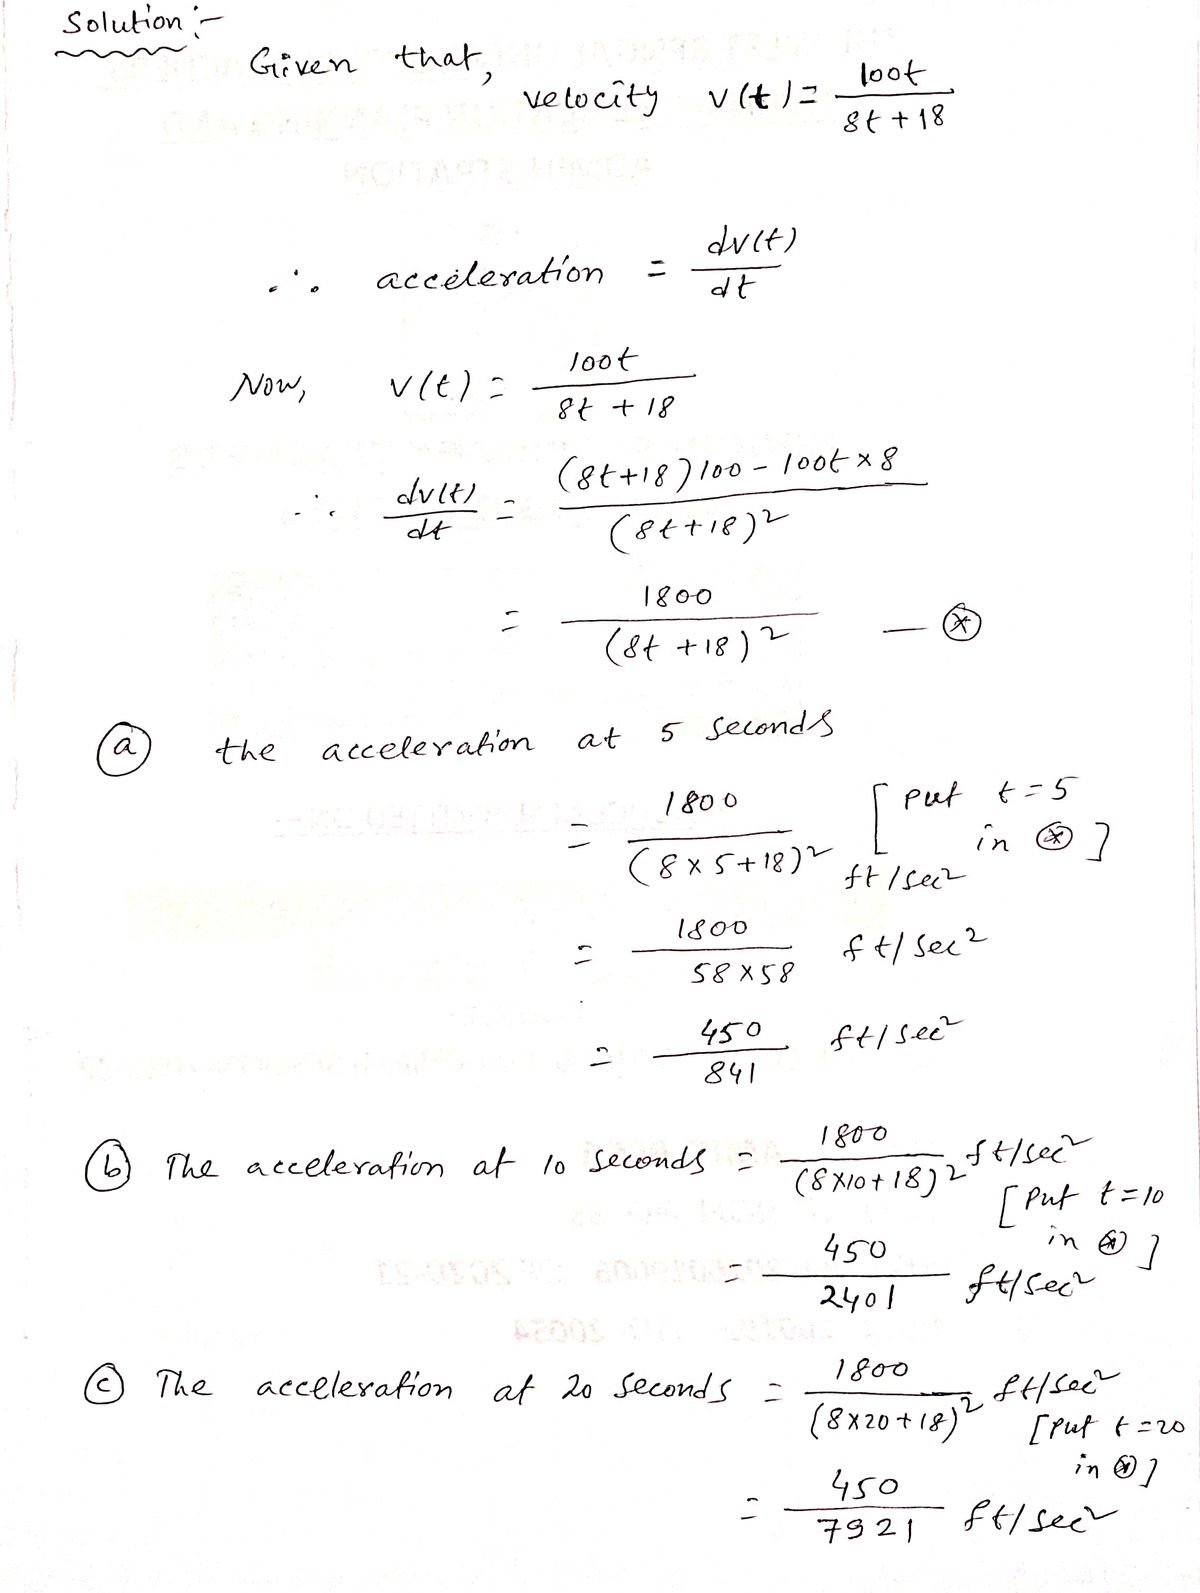 Solution :-
Given that,
velocity v(t) = 100t / 8t + 18
∴ acceleration = dv(t) / dt
Now, v(t) = 100t / 8t + 18
∴ dv(t) / dt = (8t+18)100 - 100t × 8 / (8t+18)²
= 1800 / (8t +18)² — ⊛
ⓐ the acceleration at 5 seconds
= 1800 / (8 × 5+18)² ft/sec² [ put t = 5
in ⊛ ]
= 1800 / 58 × 58 ft/sec²
= 450 / 841 ft/sec²
ⓑ The acceleration at 10 seconds = 1800 / (8×10+18)² ft/sec²
[ Put t = 10
in ⊛ ]
= 450 / 2401 ft/sec²
ⓒ The acceleration at 20 seconds = 1800 / (8×20+18)² ft/sec²
[ Put t = 20
in ⊛ ]
= 450 / 7921 ft/sec²